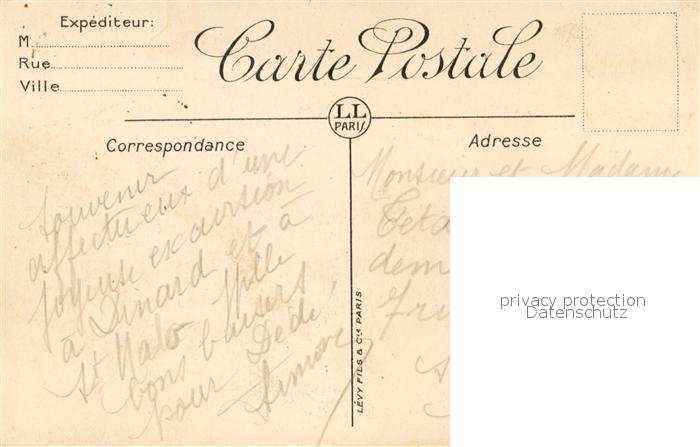 Expéditeur:
M
Rue
Ville
Carte Postale
LL
PARIS
Correspondance
Adresse
souvenir
affectueux d'une
joyeuse excursion
à Dinard et à
St Malo Mille
bons baisers
pour Dédé,
Simone
LÉVY FILS & Cie PARIS
Monsieur et Madame
privacy protection
Datenschutz